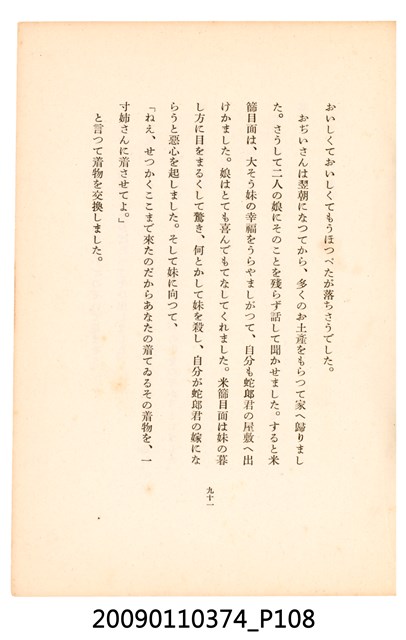 おいしくておいしくてもうほつぺたが落ちさうでした。
おぢいさんは翌朝になつてから、多くのお土産をもらつて家へ歸りまし
た。さうして二人の娘にそのことを殘らず話して聞かせました。すると米
篩目面は、大そう妹の幸福をうらやましがつて、自分も蛇郎君の屋敷へ出
かけました。娘はとても喜んでもてなしてくれました。米篩目面は妹の暮
し方に目をまるくして驚き、何とかして妹を殺し、自分が蛇郎君の嫁にな
らうと惡心を起しました。そして妹に向つて、
「ねえ、せつかくここまで來たのだからあなたの着てゐるその着物を、一
寸姉さんに着させてよ。」
と言つて着物を交換しました。
九十一
20090110374_P108